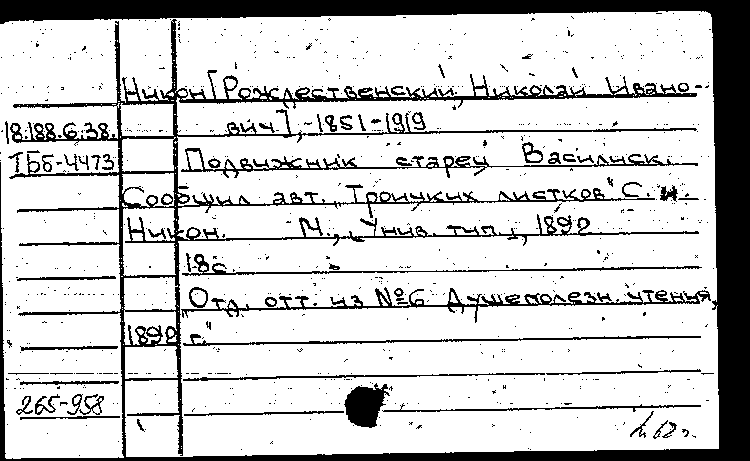 Никон [Рождественский, Николай Ивано-
18.188.6.38. вич], -1851-1919
IББ-4473 Подвижник старец Василиск.
Сообщил авт. "Троицких листков" С. и.
Никон. М., [Унив. тип.], 1892
18с
"Отд. отт. из №6 Душеполезн. чтения,
1892 г."
265-958